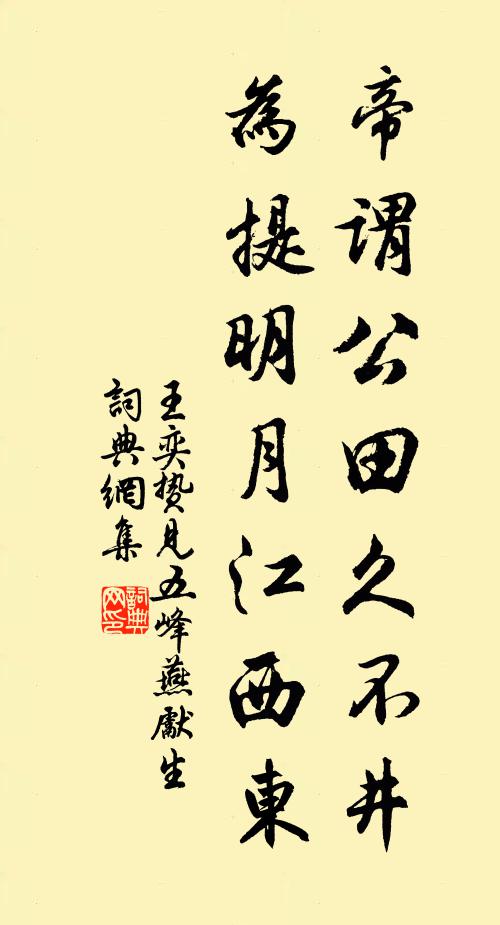 帝谓公田久不井
為提明月江西東
王奕贽見五峰燕獻生
詞典網集
詞典网印